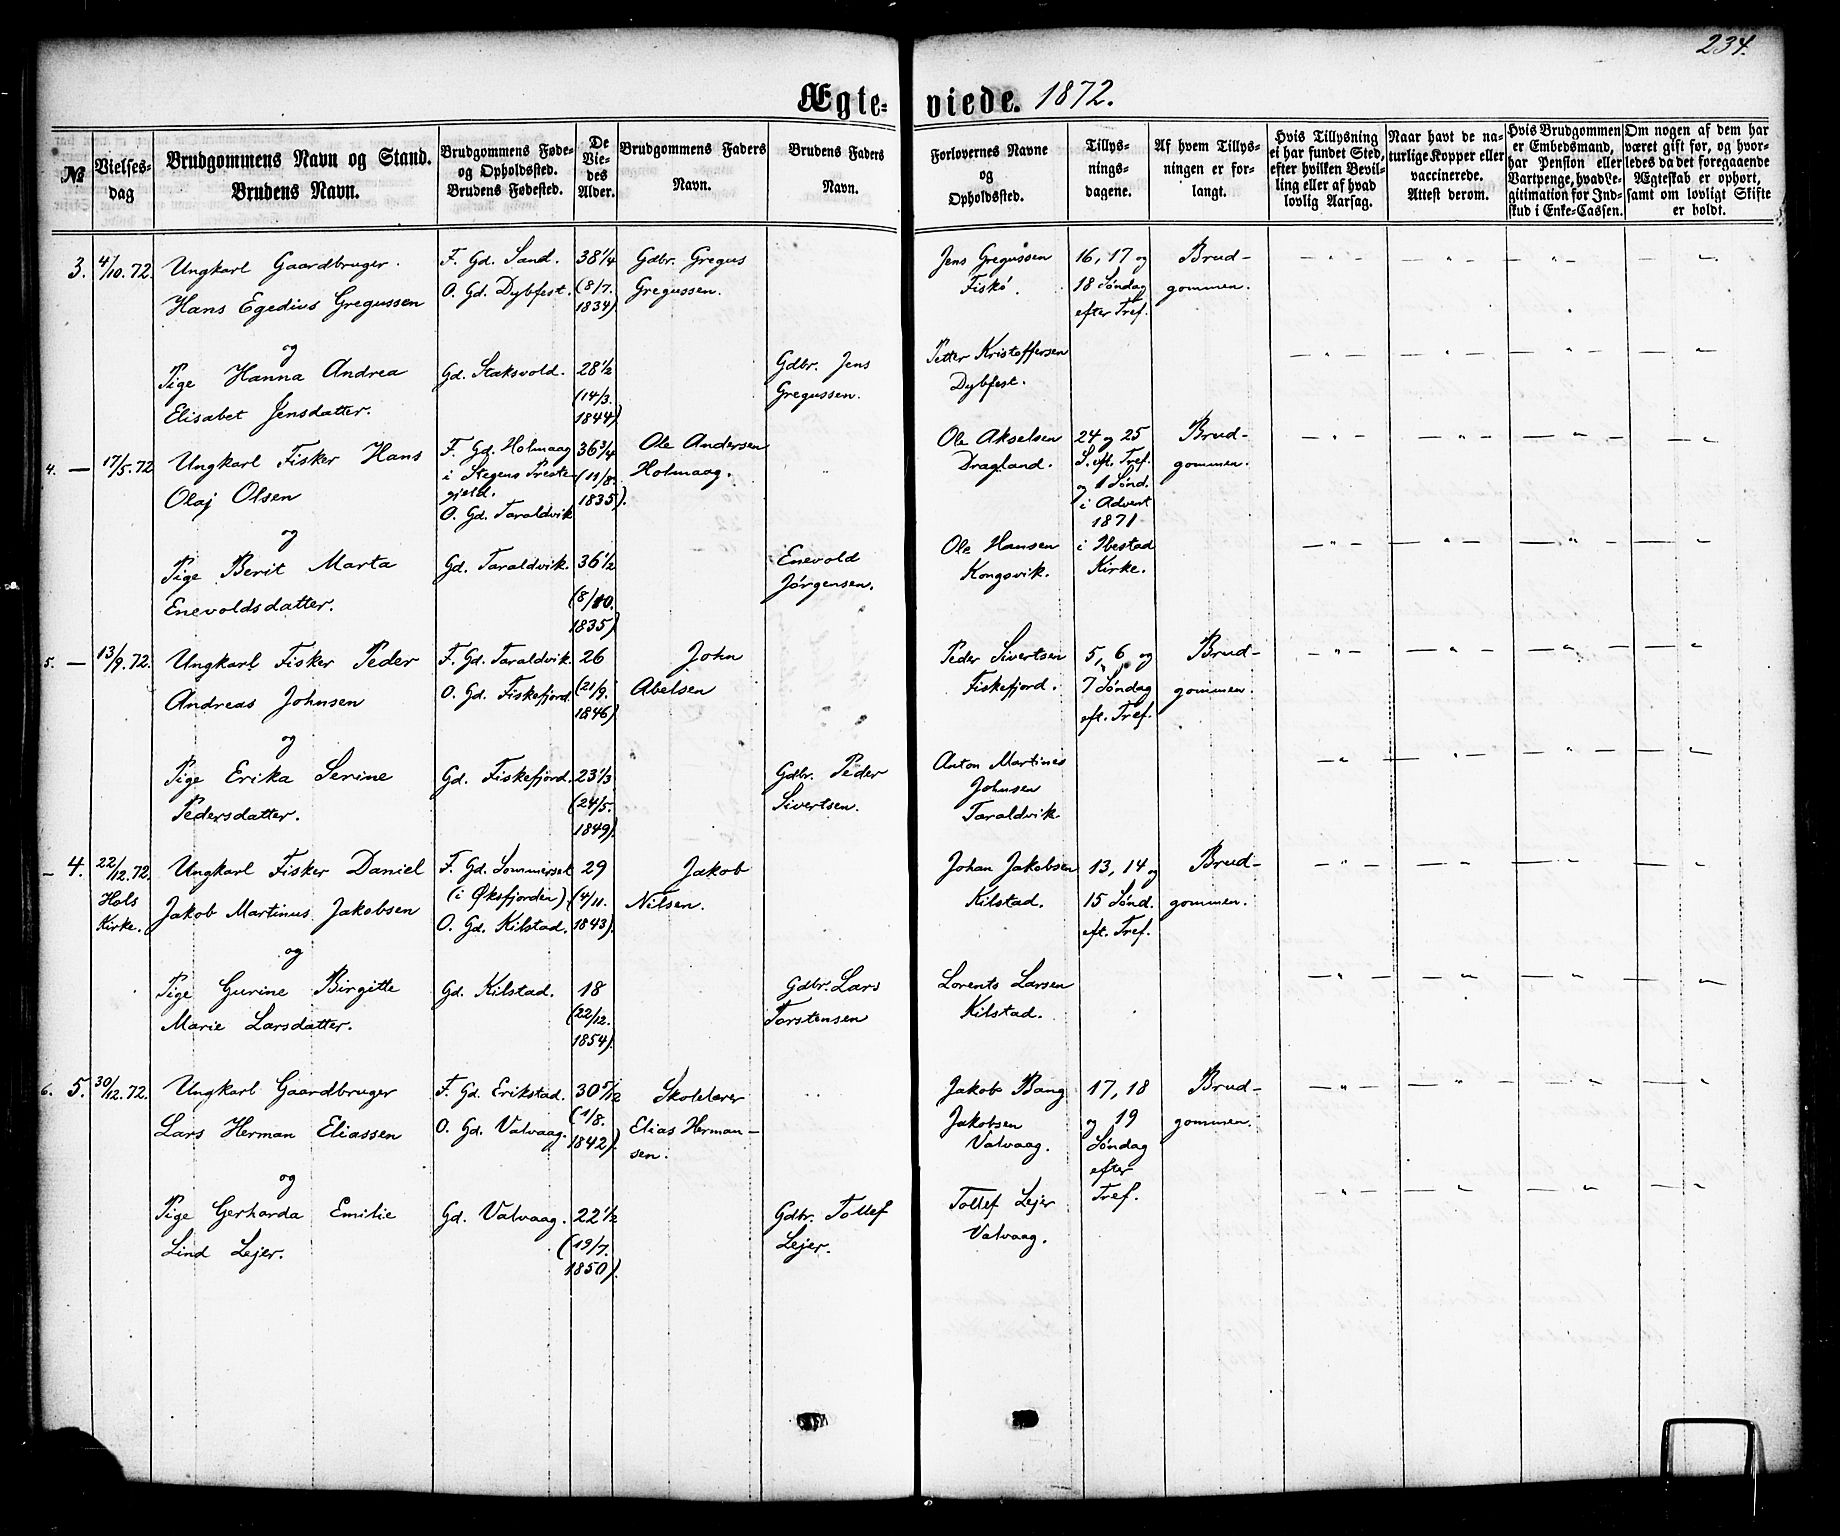 234.
Ægte- viede. 1872.
№
Vielses-
dag
Brudgommens Navn og Stand.
Brudens Navn.
Brudgommens Føde-
og Opholdssted.
Brudens Fødested.
De
Vie-
des
Alder.
Brudgommens Faders
Navn.
Brudens Faders
Navn.
Forlovernes Navne
og
Opholdssted.
Tillys-
nings-
dagene.
Af hvem Tillys-
ningen er for-
langt.
Hvis Tillysning
ei har fundet Sted,
efter hvilken Bevil-
ling eller af hvad
lovlig Aarsag.
Naar havt de na-
turlige Kopper eller
vaccinerede.
Attest derom.
Hvis Brudgommen
er Embedsmand,
har Pension eller
Vartpenge, hvad Le-
gitimation for Ind-
skud i Enke-Cassen.
Om nogen af dem har
været gift før, og hvor-
ledes da det foregaaende
Ægteskab er ophørt,
samt om lovligt Skifte
er holdt.
3.
4/10. 72
Ungkarl Gaardbruger.
Hans Egedius Gregussen
og
Pige Hanna Andrea
Elisabet Jensdatter.
F. Gd. Sand.
O. Gd. Dybfest.
Gd. Staksvold.
38 1/4
(8/7.
1834)
28 1/2
(14/3.
1844)
Gdbr. Gregus
Gregussen.
Gdbr. Jens
Gregussen.
Jens Gregussen
Fiskø.
Petter Kristoffersen
Dybfest.
16, 17 og
18 Søndag
efter Tref.
Brud-
gommen.
4. —
17/5. 72
Ungkarl Fisker Hans
Olaj Olsen
og
Pige Berit Marta
Enevoldsdatter.
F. Gd. Holmaag
i Stegens Præste-
gjeld.
O. Gd. Taraldvik
Gd. Taraldvik.
36 3/4
(11/8.
1835).
36 1/2
(8/10.
1835)
Ole Andersen
Holmaag.
Enevold
Jørgensen.
Ole Akselsen
Dragland.
Ole Hansen
Kongsvik.
24 og 25
S. eft. Tref.
og 1 Sønd.
i Advent
1871
i Ibestad
Kirke.
Brud-
gommen.
5. —
13/9. 72.
Ungkarl Fisker Peder
Andreas Johnsen
og
Pige Erika Serine
Pedersdatter.
F. Gd. Taraldvik.
O. Gd. Fiskefjord
Gd. Fiskefjord.
26
(21/9.
1846)
23 1/3
(24/5.
1849)
John
Abelsen
Gdbr. Peder
Sivertsen.
Peder Sivertsen
Fiskefjord.
Anton Martines
Johnsen
Taraldvik.
5, 6 og
7 Søndag
eft. Tref.
Brud-
gommen.
— 4.
22/12. 72.
Hols
Kirke.
Ungkarl Fisker Daniel
Jakob Martinus Jakobsen
og
Pige Gurine Birgitte
Marie Larsdatter.
F. Gd. Sommerset
(i Øksfjorden)
O. Gd. Kilstad.
Gd. Kilstad.
29
(4/11.
1843)
18
(22/12.
1854)
Jakob
Nilsen.
Gdbr. Lars
Torstensen
Johan Jakobsen
Kilstad.
Lorents Larsen
Kilstad.
13, 14 og
15 Sønd.
eft. Tref.
Brud-
gommen.
6. 5.
30/12. 72.
Ungkarl Gaardbruger
Lars Herman Eliassen
og
Pige Gerharda Emilie
Lind Lejer.
F. Gd. Erikstad.
O. Gd. Valvaag.
Gd. Valvaag.
30 5/12
(1/8.
1842)
22 1/2
(19/7.
1850).
Skolelærer
Elias Herman-
sen.
Gdbr. Tollef
Lejer.
Jakob Bang
Jakobsen
Valvaag.
Tollef Lejer
Valvaag.
17, 18
og 19
Søndag
efter
Tref.
Brud-
gommen.